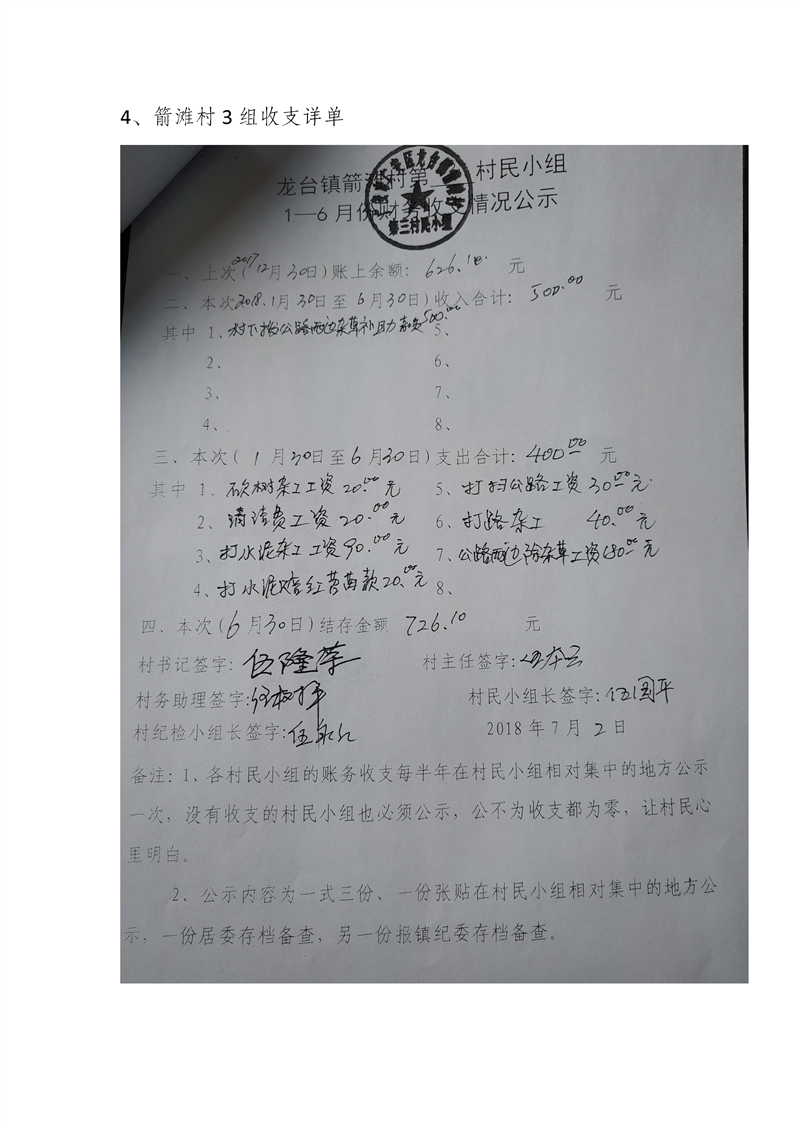 4、箭滩村 3 组收支详单
龙台镇箭滩村第 村民小组
1—6 月份财务收支情况公示
第三村民小组
一、上次(2017 12月30日)账上余额: 626.10 元
二、本次2018.1月30日至 6月30日)收入合计: 500.00 元
其中 1、村下拨公路两边杂草补助 500.00 5、
2、 6、
3、 7、
4、 8、
三、本次( 1月30日至6月30日)支出合计: 400.00 元
其中 1、砍树杂工工资20.00元 5、打扫公路工资30.00元
2、清洁费工资20.00元 6、打路杂工 40.00元
3、打水泥杂工工资90.00元 7、公路两边除杂草工资180.00元
4、打水泥 红苕苗款20.00元 8、
四、本次(6月30日)结存金额 726.10 元
村书记签字: 伍隆荣 村主任签字:
村务助理签字: 村民小组长签字:伍国平
村纪检小组长签字:伍
2018 年 7 月 2 日
备注: 1、各村民小组的账务收支每半年在村民小组相对集中的地方公示
一次，没有收支的村民小组也必须公示，公不为收支都为零，让村民心
里明白。
2、公示内容为一式三份、一份张贴在村民小组相对集中的地方公
示，一份居委存档备查，另一份报镇纪委存档备查。